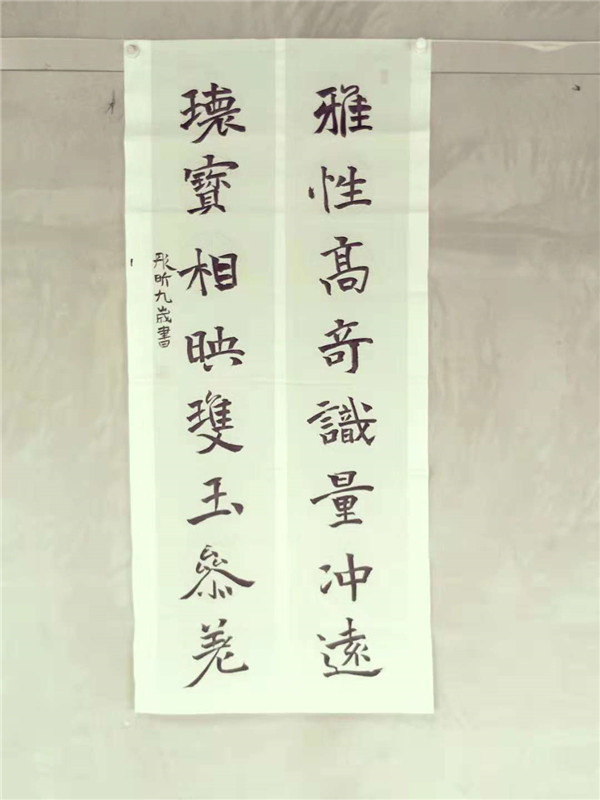 雅性髙竒識量冲遠
瓌寶相映雙玉參差
彤昕九歲書